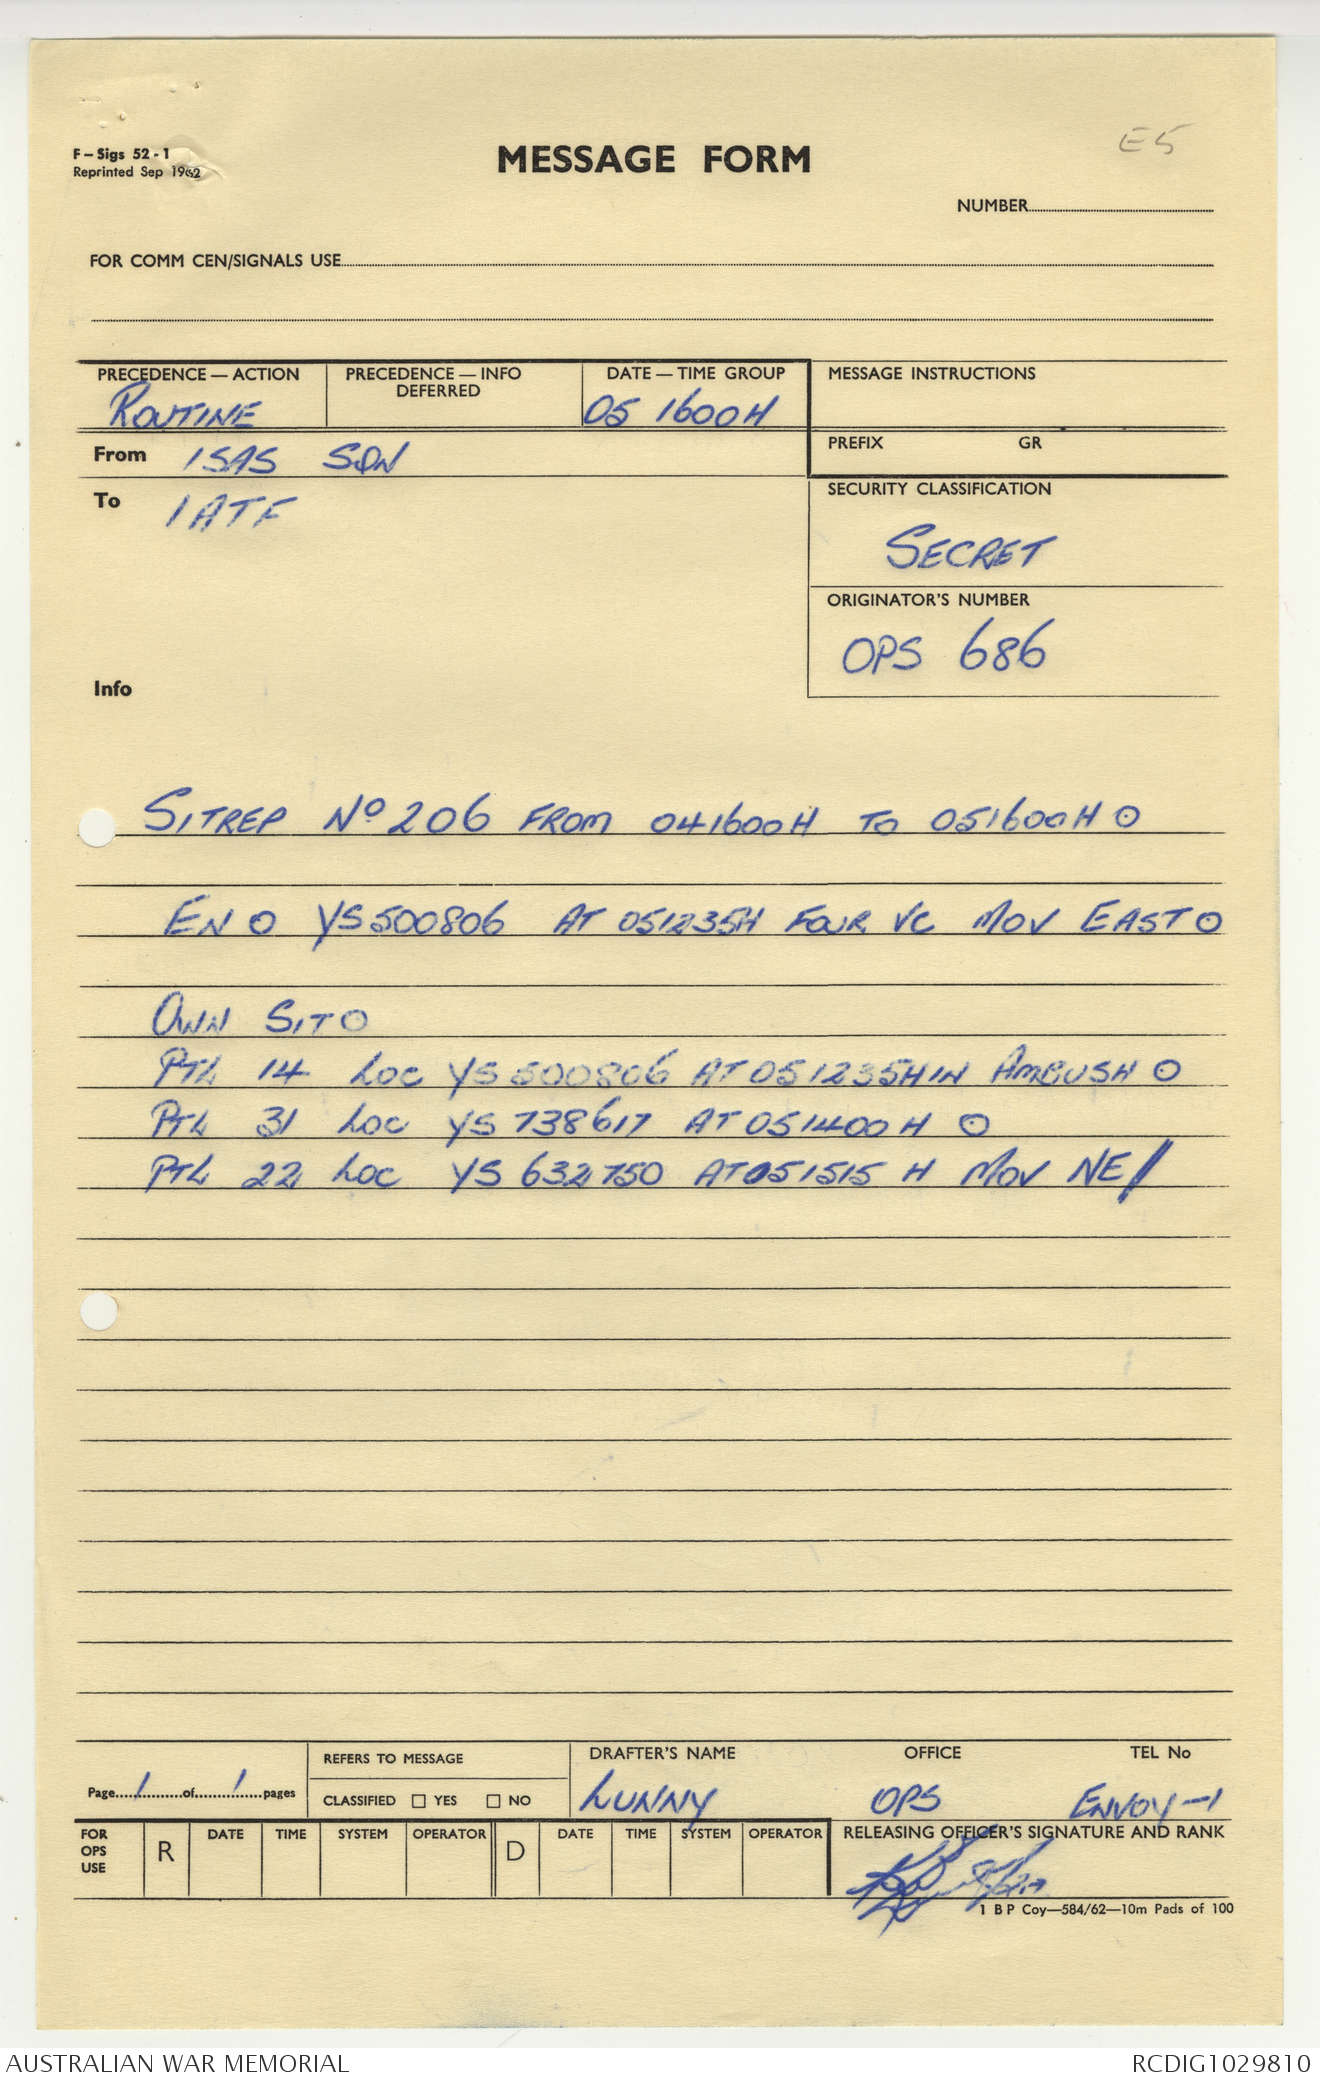 F – Sigs 52 - 1
Reprinted Sep 1962
MESSAGE FORM
E5
NUMBER
FOR COMM CEN/SIGNALS USE
PRECEDENCE — ACTION
ROUTINE
PRECEDENCE — INFO
DEFERRED
DATE — TIME GROUP
05 1600H
MESSAGE INSTRUCTIONS
From 1SAS SQN
PREFIX GR
To 1 ATF
SECURITY CLASSIFICATION
SECRET
ORIGINATOR'S NUMBER
OPS 686
Info
SITREP Nº 206 FROM 041600H TO 051600H ⊙
EN O YS500806 AT 051235H FOUR VC MOV EAST ⊙
OWN SIT O
PTL 14 LOC YS 500806 AT 051235H IN AMBUSH O
PTL 31 LOC YS 738617 AT 051400 H ⊙
PTL 22 LOC YS 632750 AT 051515 H MOV NE //
Page 1 of 1 pages
REFERS TO MESSAGE
CLASSIFIED ☐ YES ☐ NO
DRAFTER'S NAME
LUNNY
OFFICE
OPS
TEL No
ENVOY-1
FOR
OPS
USE
R DATE TIME SYSTEM OPERATOR D DATE TIME SYSTEM OPERATOR
RELEASING OFFICER'S SIGNATURE AND RANK
1 B P Coy—584/62—10m Pads of 100
AUSTRALIAN WAR MEMORIAL
RCDIG1029810